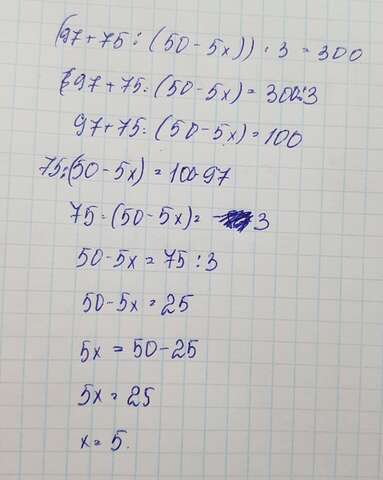 (97+75:(50-5x))·3=300
97+75:(50-5x)=300:3
97+75:(50-5x)=100
75:(50-5x)=100-97
75:(50-5x)=3
50-5x=75:3
50-5x=25
5x=50-25
5x=25
x=5.